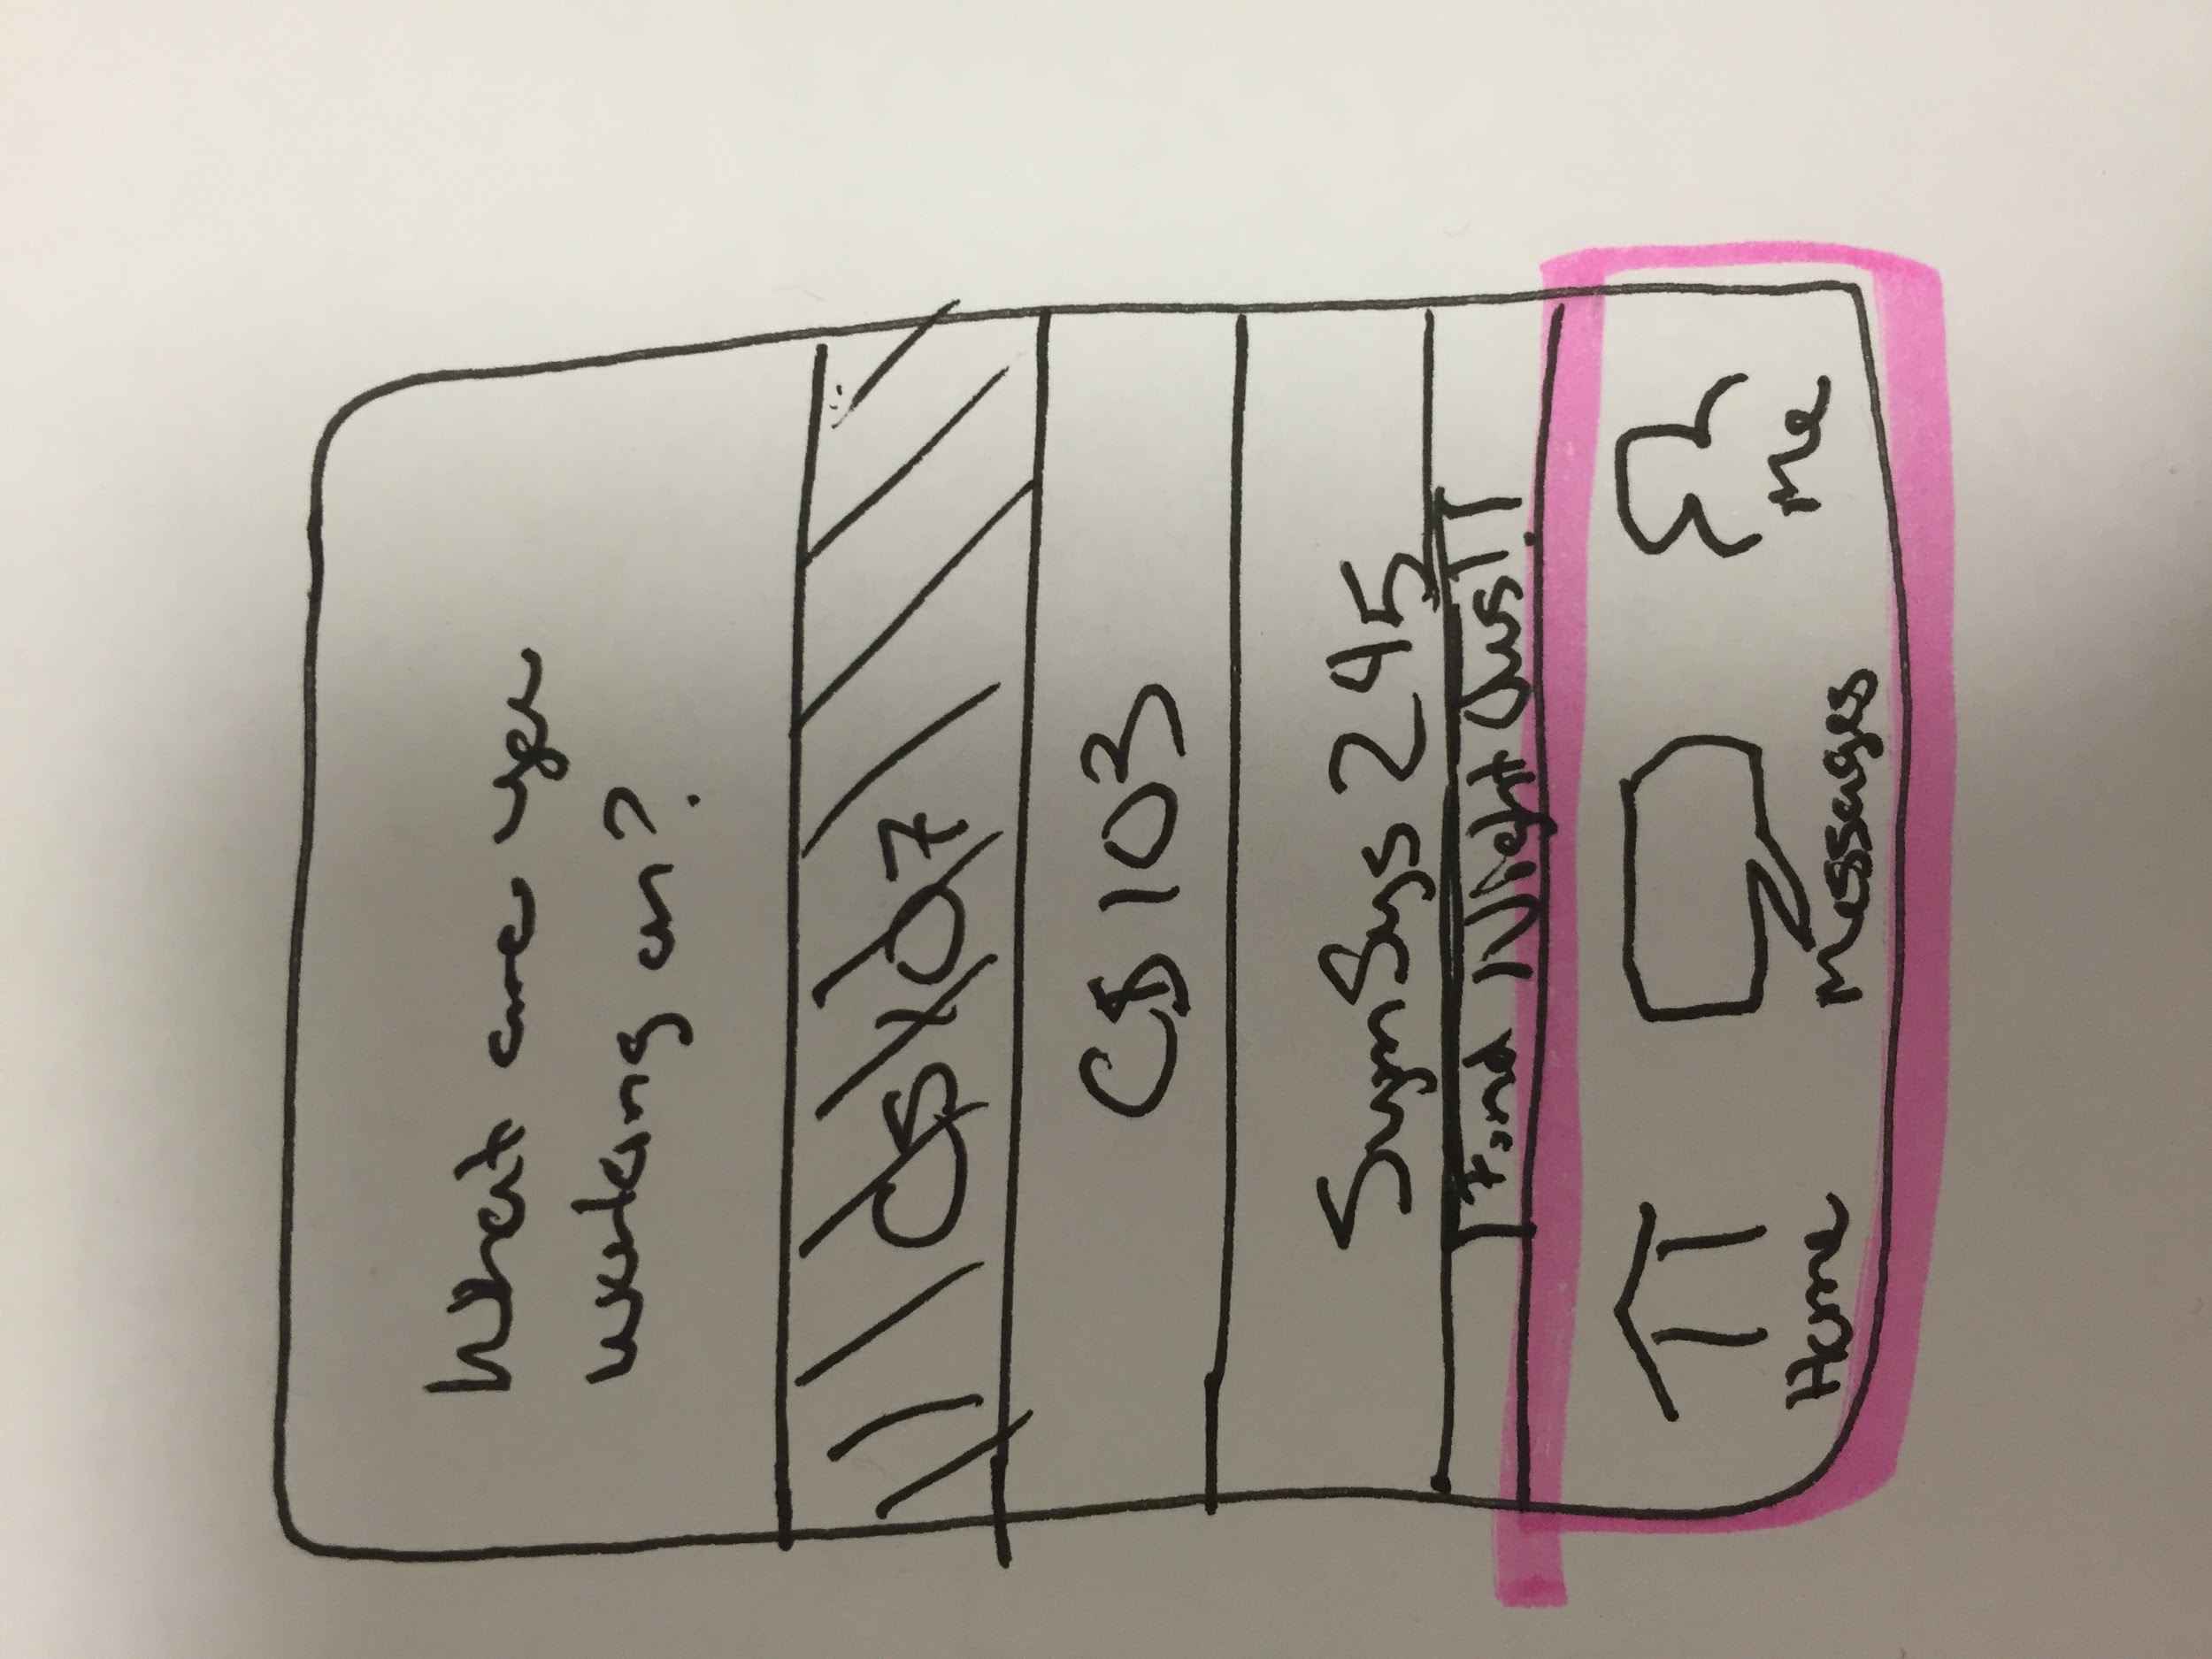 What are you
working on?
CS 107
CS 103
SymSys 245
Find Night Owls
Home Messages Me